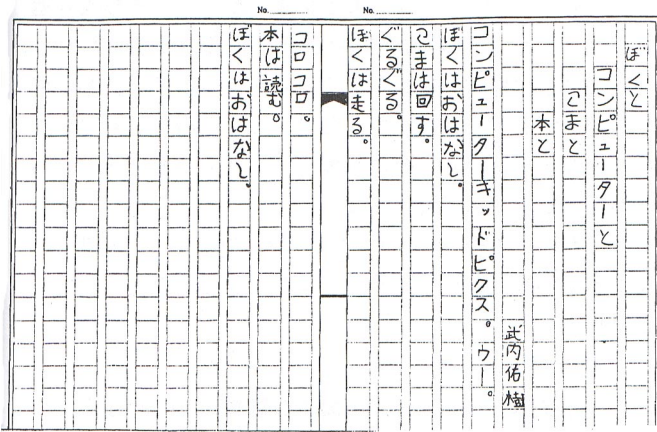 No.
No.
ぼくと
コンピューターと
こまと
本と
武内佑樹
コンピューターキッドピクス。ウー。
ぼくはおはなし。
こまは回す。
ぐるぐる。
ぼくは走る。
コロコロ。
本は読む。
ぼくはおはなし。